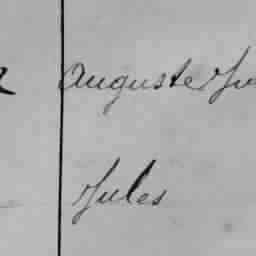 Auguste
Jules